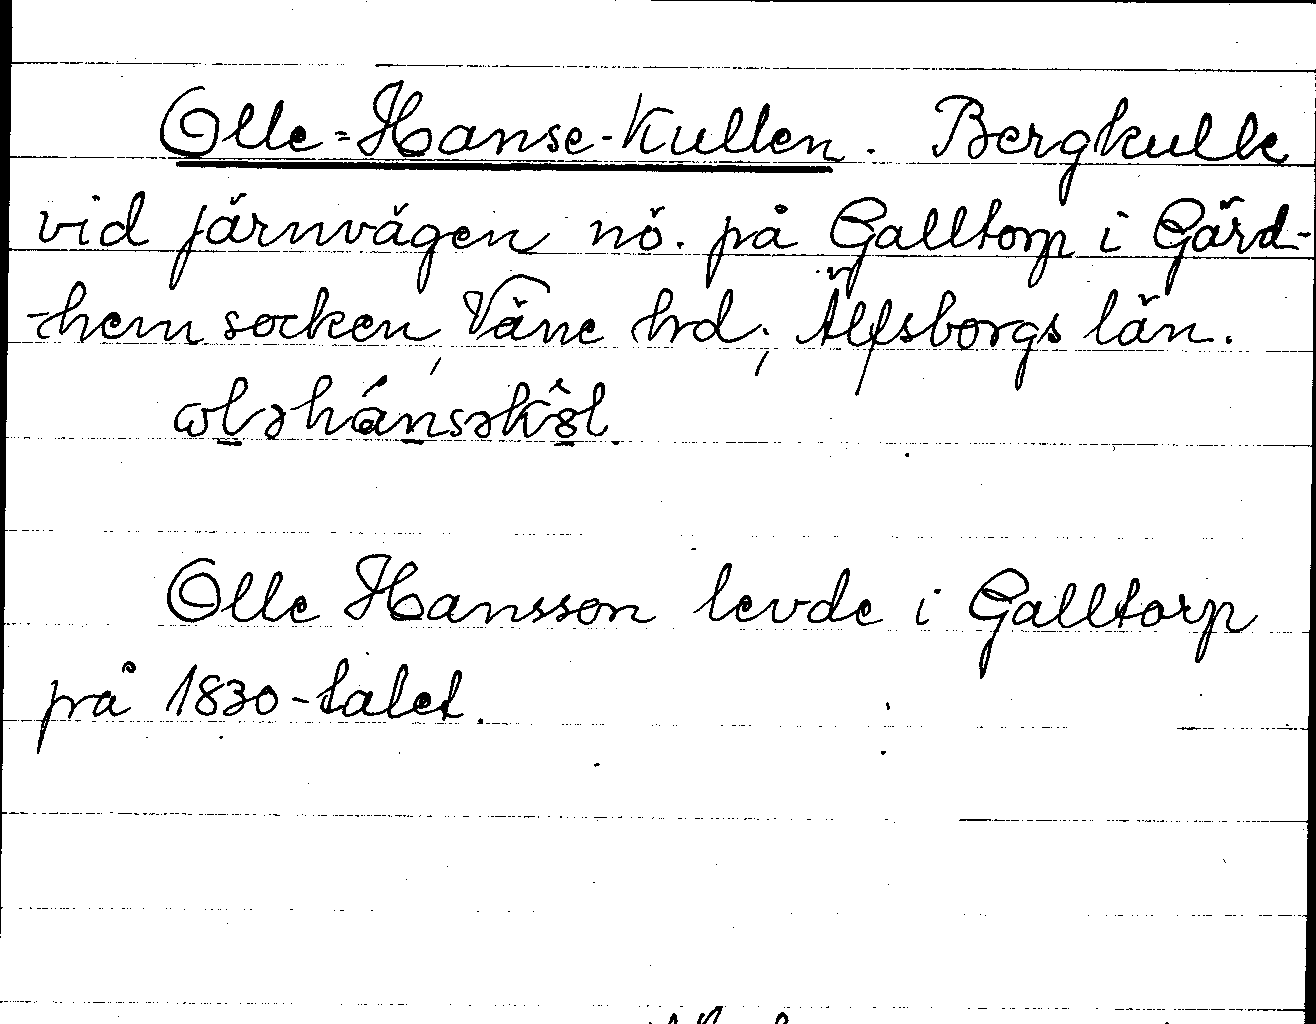 Olle-Hanse-Kullen. Bergkulle
vid järnvägen nö. på Galltorp i Gärd-
-hem socken, Väne hrd; Älfsborgs län.
Olle Hansson levde i Galltorp
på 1830-talet.